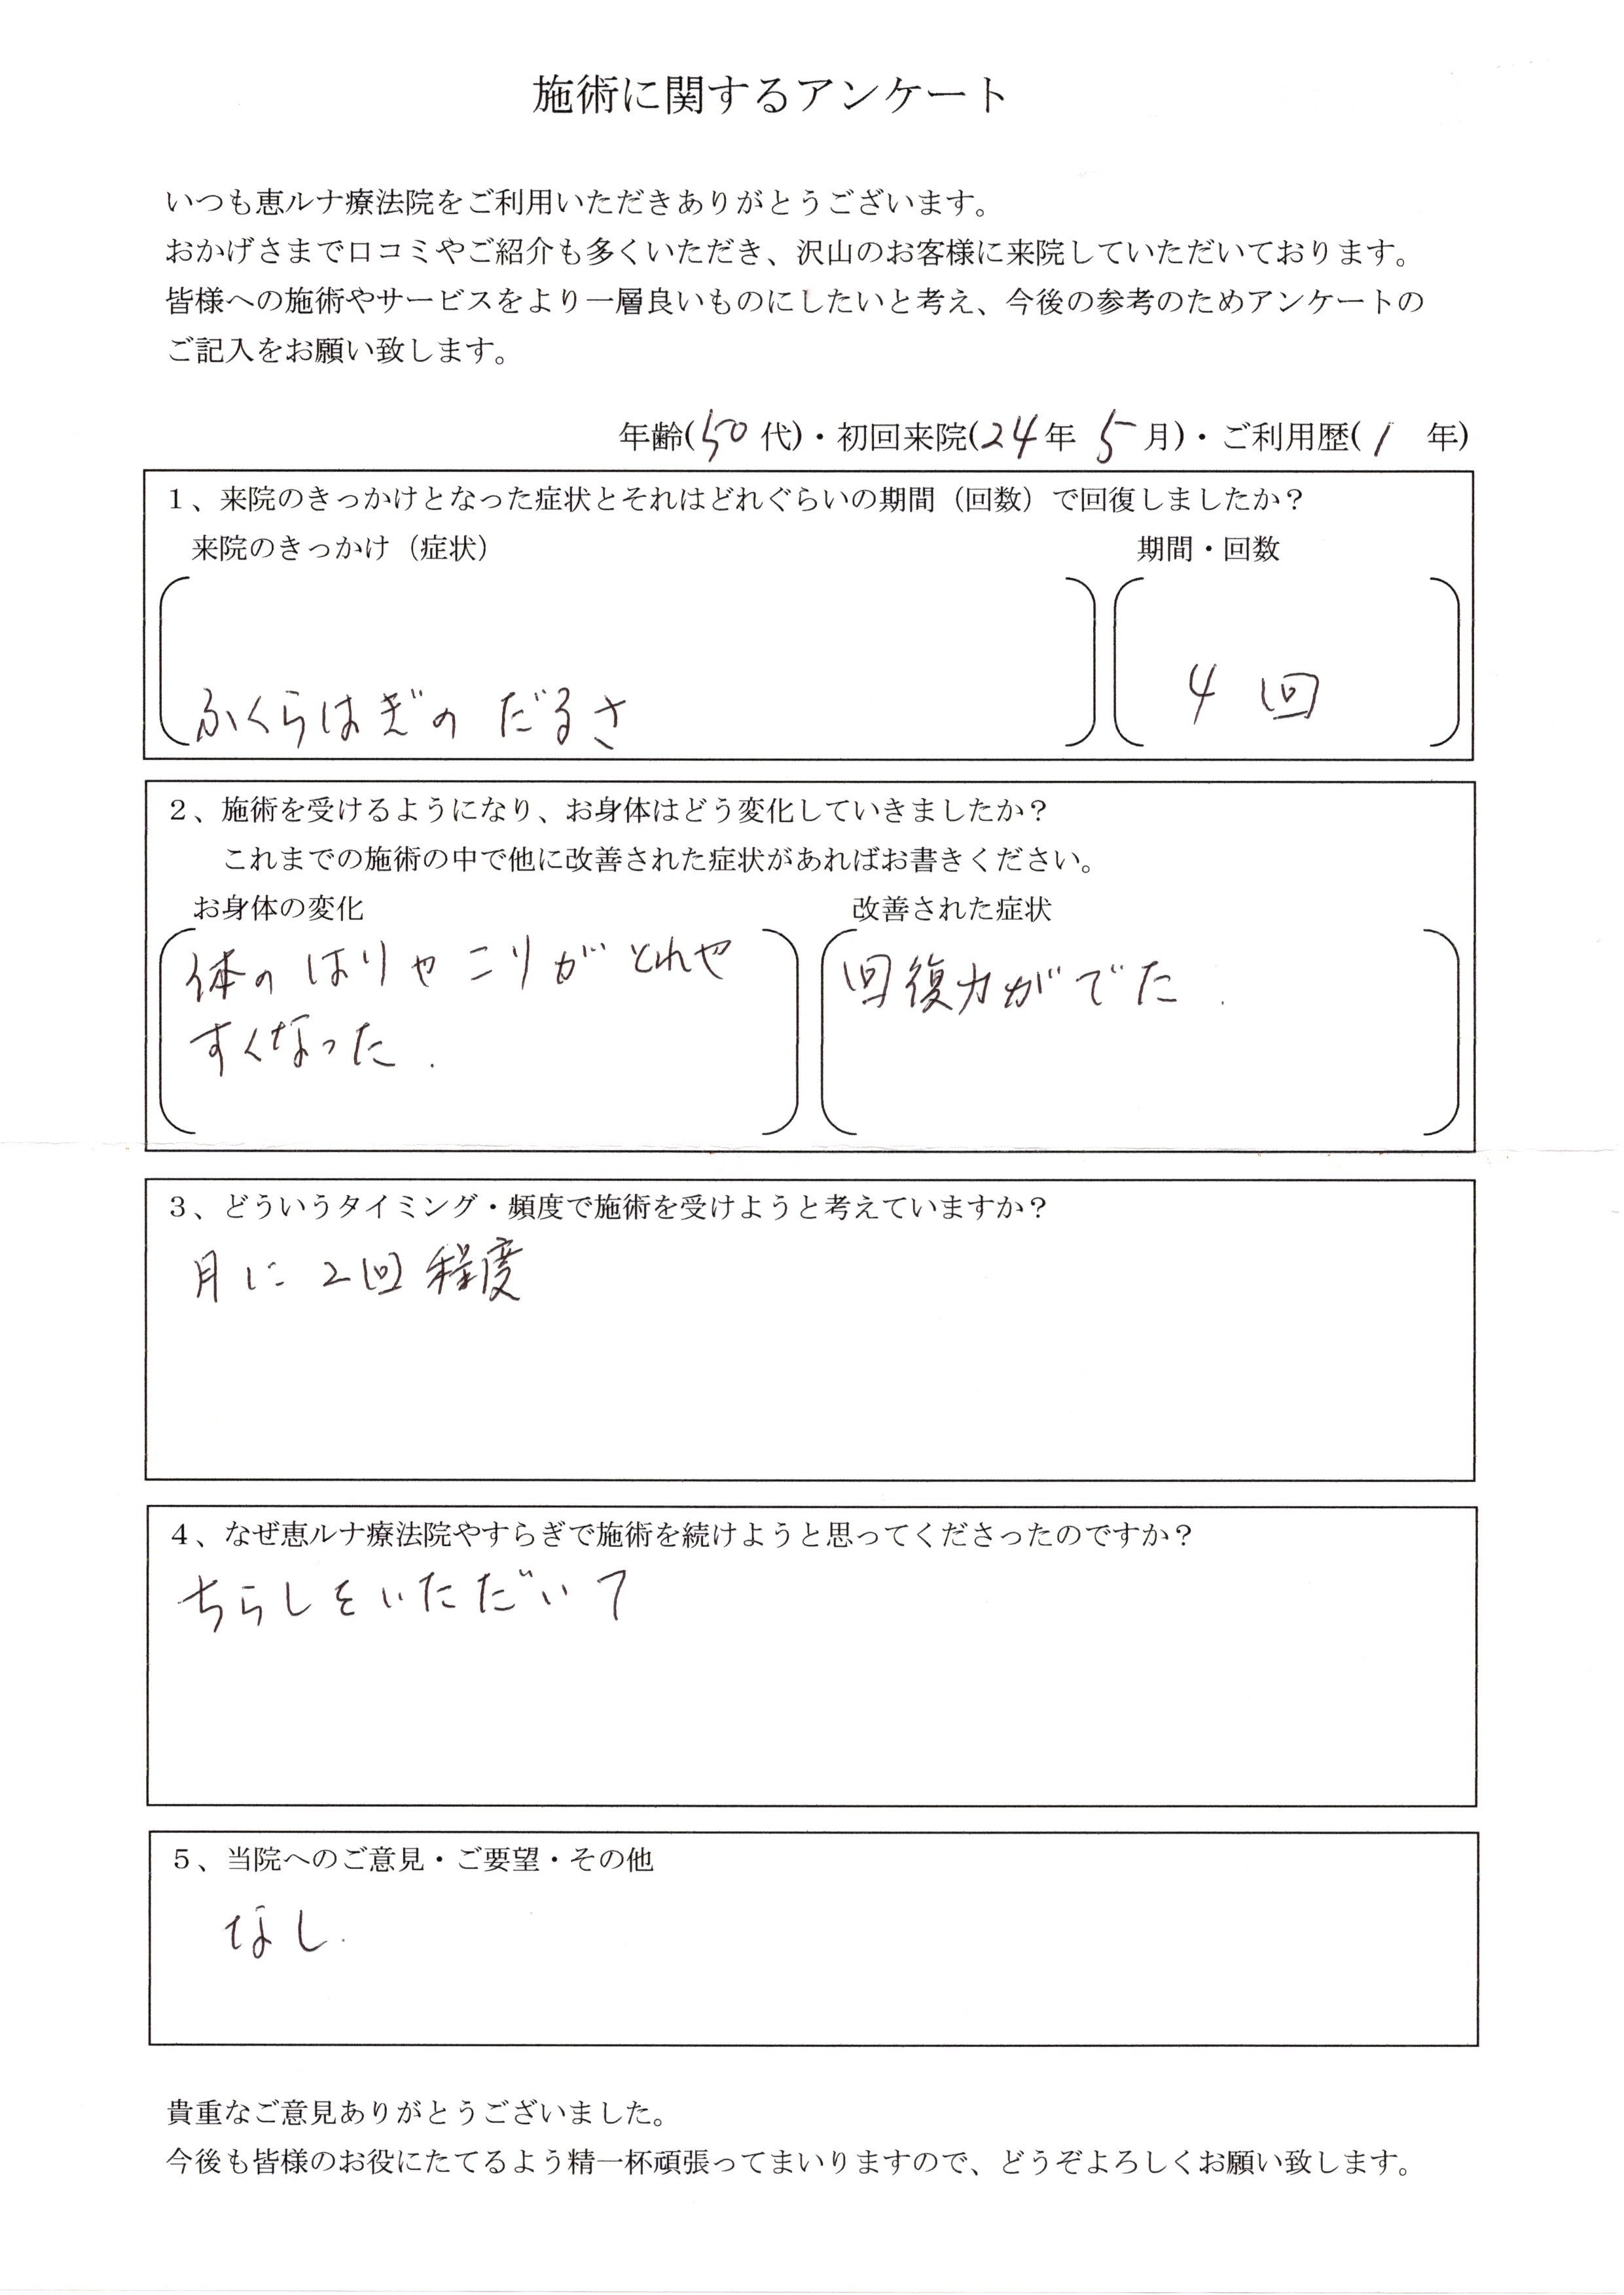 施術に関するアンケート
いつも恵ルナ療法院をご利用いただきありがとうございます。
おかげさまで口コミやご紹介も多くいただき、沢山のお客様に来院していただいております。
皆様への施術やサービスをより一層良いものにしたいと考え、今後の参考のためアンケートの
ご記入をお願い致します。
年齢(50代)・初回来院(24年 5月)・ご利用歴(1 年)
１、来院のきっかけとなった症状とそれはどれぐらいの期間（回数）で回復しましたか？
来院のきっかけ（症状） 期間・回数
ふくらはぎの だるさ 4 回
２、施術を受けるようになり、お身体はどう変化していきましたか？
これまでの施術の中で他に改善された症状があればお書きください。
お身体の変化 改善された症状
体の はりや こりが とれや
すくなった.
回復力がでた.
３、どういうタイミング・頻度で施術を受けようと考えていますか？
月に 2回 程度
４、なぜ恵ルナ療法院やすらぎで施術を続けようと思ってくださったのですか？
ちらしをいただいて
５、当院へのご意見・ご要望・その他
なし.
貴重なご意見ありがとうございました。
今後も皆様のお役にたてるよう精一杯頑張ってまいりますので、どうぞよろしくお願い致します。